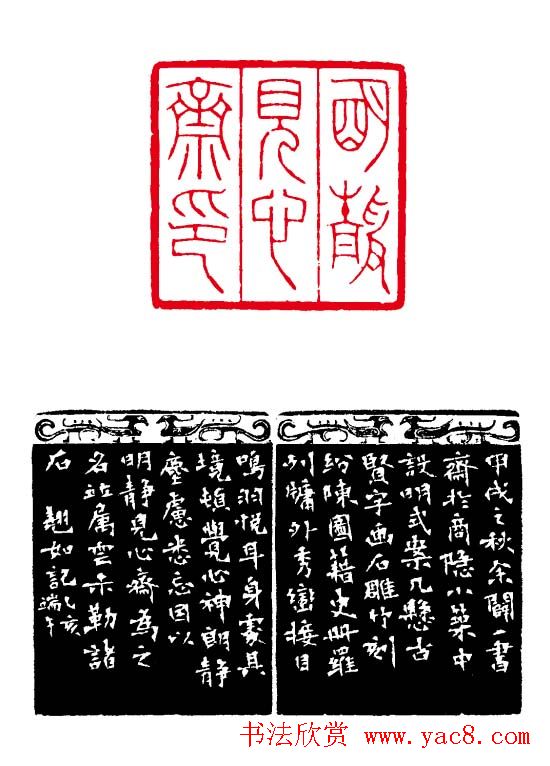 明静
见心
斋印
甲戌之秋余闢一書
齋於商隐小築中
設明式案几懸古
賢字画石雕竹刻
纷陳圖籍史册羅
列牗外秀巒接目
鳴羽悦耳身處其
境頓覺心神朗静
塵慮悉忘因以
明静見心齋為之
名并属雲禾勒諸
石 翘如記乙亥
端午
书法欣赏 www.yac8.com